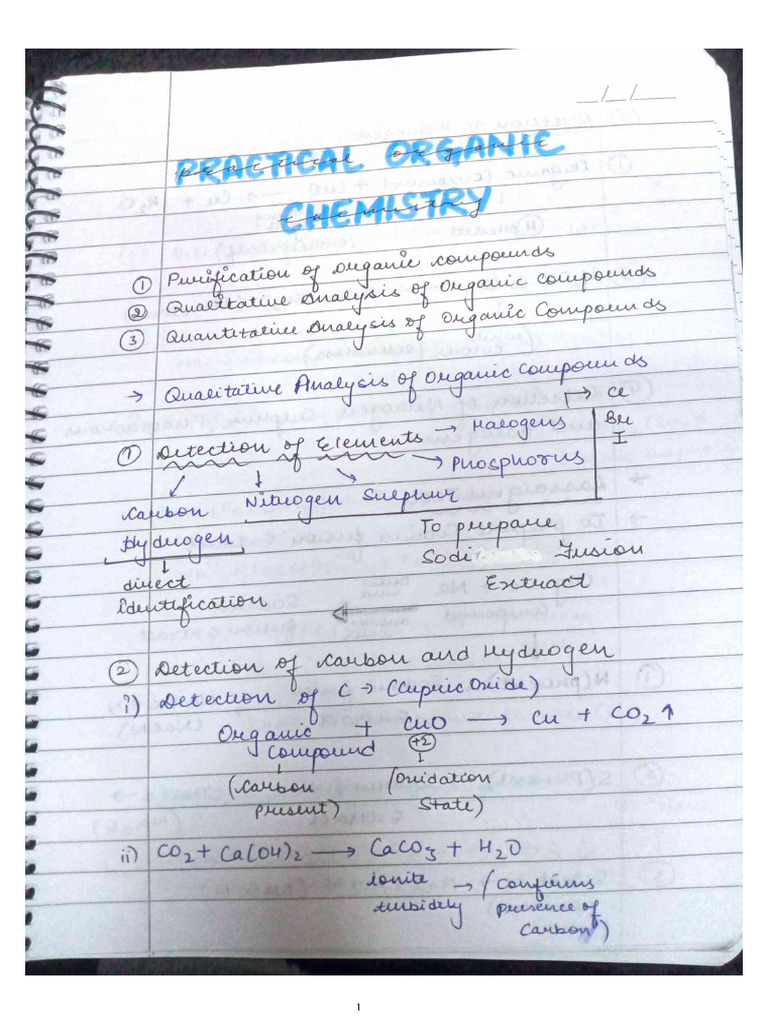 __/__/____
PRACTICAL ORGANIC
CHEMISTRY
① Purification of Organic Compounds
② Qualitative Analysis of Organic Compounds
③ Quantitative Analysis of Organic Compounds
→ Qualitative Analysis of Organic Compounds
① Detection of Elements → Halogens → Cl
Br
I
→ Phosphorus
Carbon Nitrogen Sulphur
Hydrogen
↓
direct
identification
To prepare
Sodi Fusion
Extract
② Detection of Carbon and Hydrogen
i) Detection of C → (Cupric Oxide)
Organic + CuO → Cu + CO₂↑
Compound (+2)
(Carbon (Oxidation
present) State)
ii) CO₂ + Ca(OH)₂ → CaCO₃ + H₂O
turbidety → (Confirms
presence of
Carbon)
1